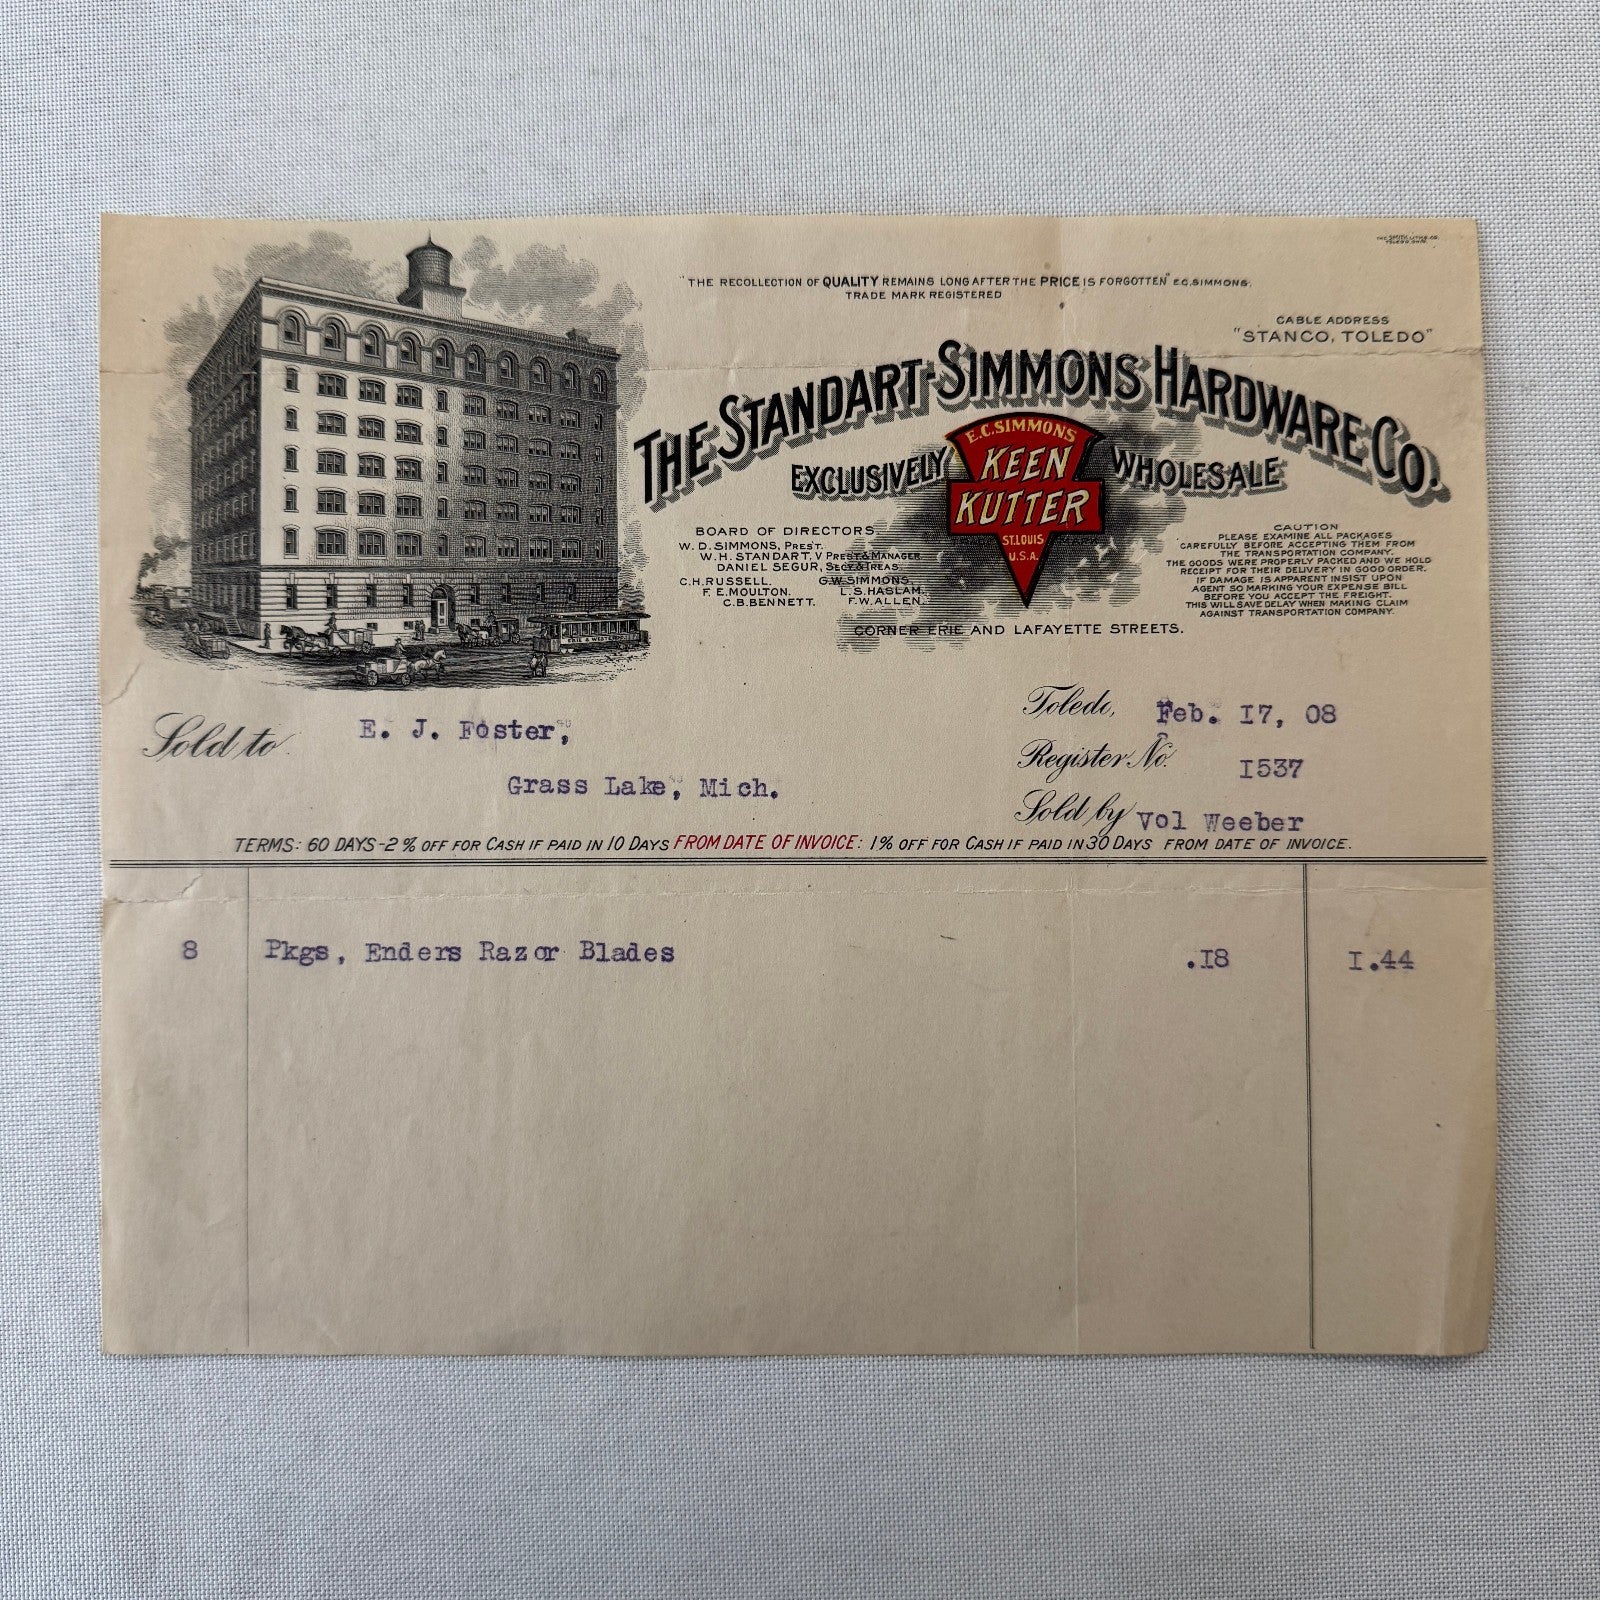 THE SMITH LITHO. CO.
TOLEDO, OHIO.
"THE RECOLLECTION OF QUALITY REMAINS LONG AFTER THE PRICE IS FORGOTTEN" E.C. SIMMONS.
TRADE MARK REGISTERED
CABLE ADDRESS
"STANCO, TOLEDO"
THE STANDART-SIMMONS HARDWARE CO.
EXCLUSIVELY WHOLESALE
E.C. SIMMONS
KEEN
KUTTER
ST. LOUIS
U.S.A.
BOARD OF DIRECTORS
W. D. SIMMONS, PREST.
W. H. STANDART, V PREST & MANAGER
DANIEL SEGUR, SECY & TREAS.
C. H. RUSSELL. G. W. SIMMONS.
F. E. MOULTON. L. S. HASLAM.
C. B. BENNETT. F. W. ALLEN.
CORNER ERIE AND LAFAYETTE STREETS.
CAUTION
PLEASE EXAMINE ALL PACKAGES
CAREFULLY BEFORE ACCEPTING THEM FROM
THE TRANSPORTATION COMPANY.
THE GOODS WERE PROPERLY PACKED AND WE HOLD
RECEIPT FOR THEIR DELIVERY IN GOOD ORDER.
IF DAMAGE IS APPARENT INSIST UPON
AGENT SO MARKING YOUR EXPENSE BILL
BEFORE YOU ACCEPT THE FREIGHT.
THIS WILL SAVE DELAY WHEN MAKING CLAIM
AGAINST TRANSPORTATION COMPANY.
Toledo, Feb. 17, 08
Sold to E. J. Foster,
Grass Lake, Mich.
Register No. 1537
Sold by Vol Weeber
TERMS: 60 DAYS - 2% OFF FOR CASH IF PAID IN 10 DAYS FROM DATE OF INVOICE: 1% OFF FOR CASH IF PAID IN 30 DAYS FROM DATE OF INVOICE.
8 Pkgs, Enders Razor Blades .18 1.44